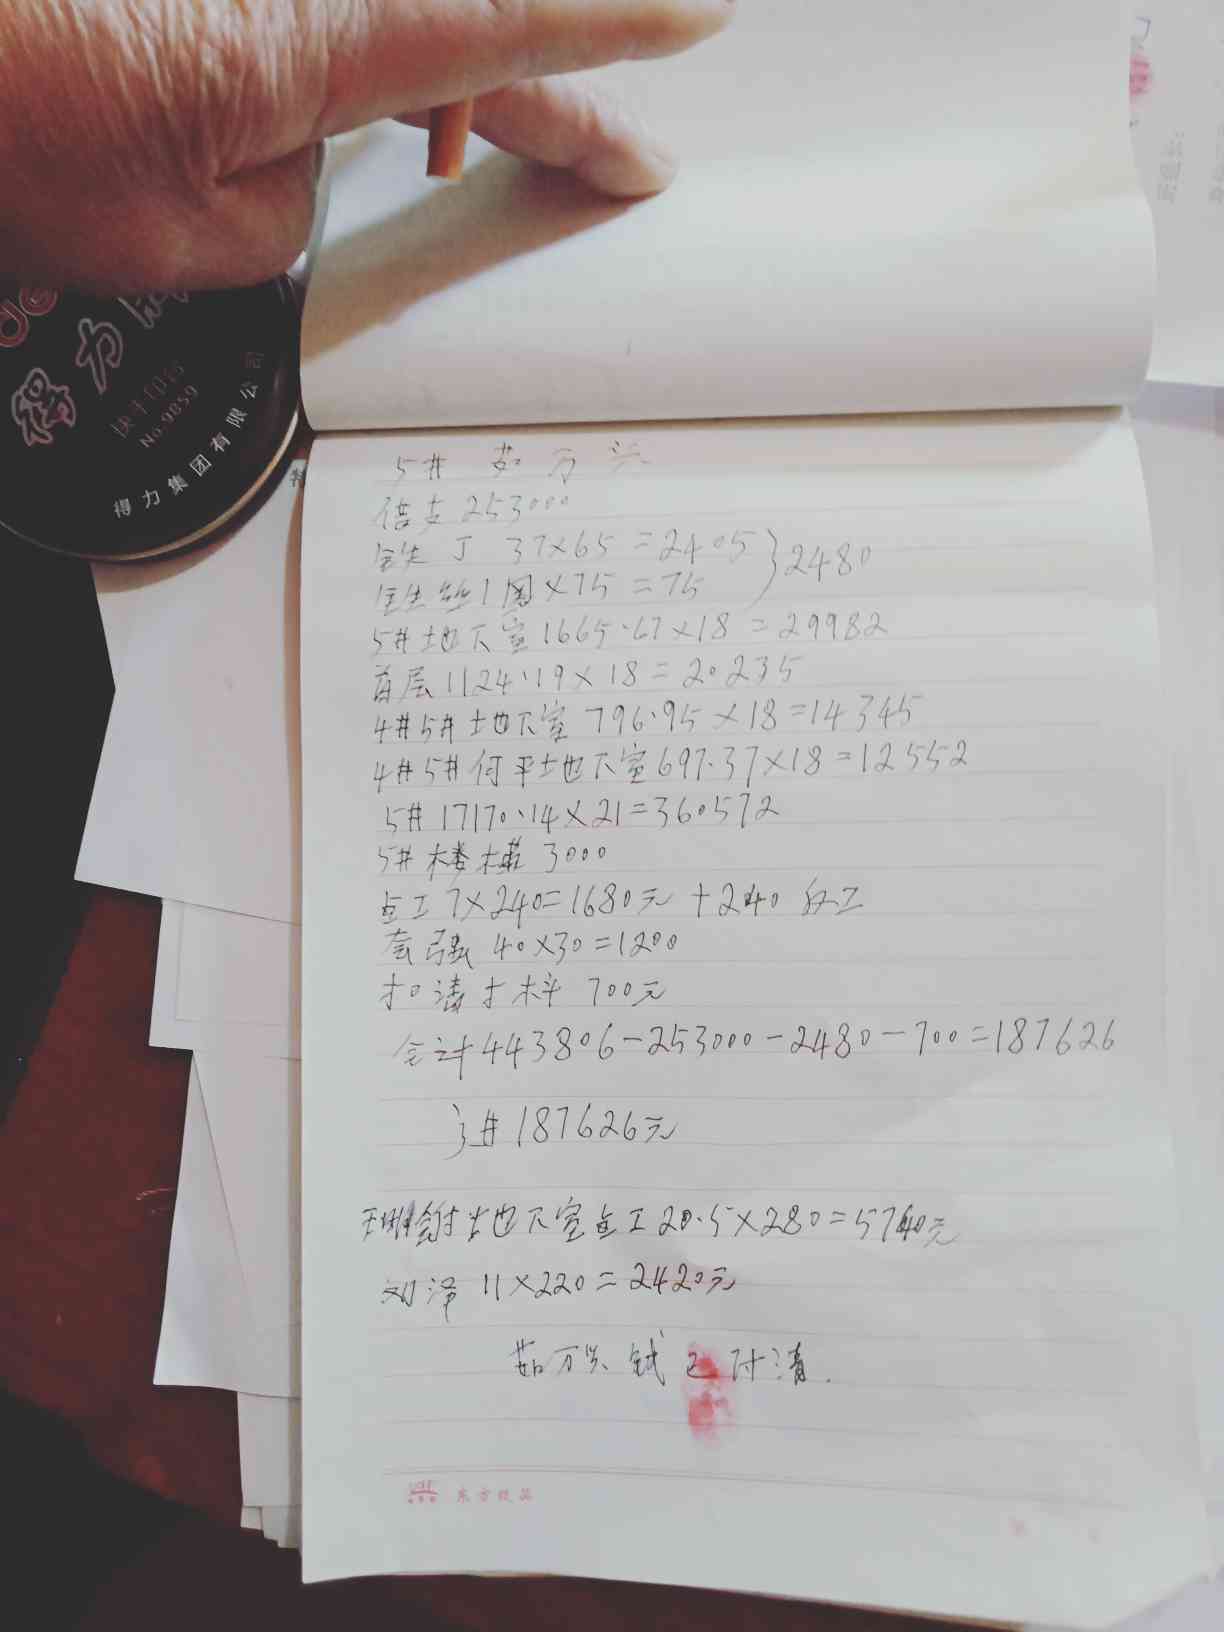 得力
快干印台
No.9859
得力集团有限公司
5# 茹万头
借支253000
铁丁 37×65=2405
}2480
铁丝1圈×75=75
5#地下室1665.67×18=29982
首层1124.19×18=20235
4#5#地下室 796.95×18=14345
4#5#何平地下室697.37×18=12552
5# 17170.14×21=360572
5#楼梯 3000
点工 7×240=1680元 +240
40×30=1200
扣清 700元
合计443806-253000-2480-700=187626
187626元
地下室点工20.5×280=5740元
刘泽 11×220=2420元
茹万头 钱已付清.
东方纸品